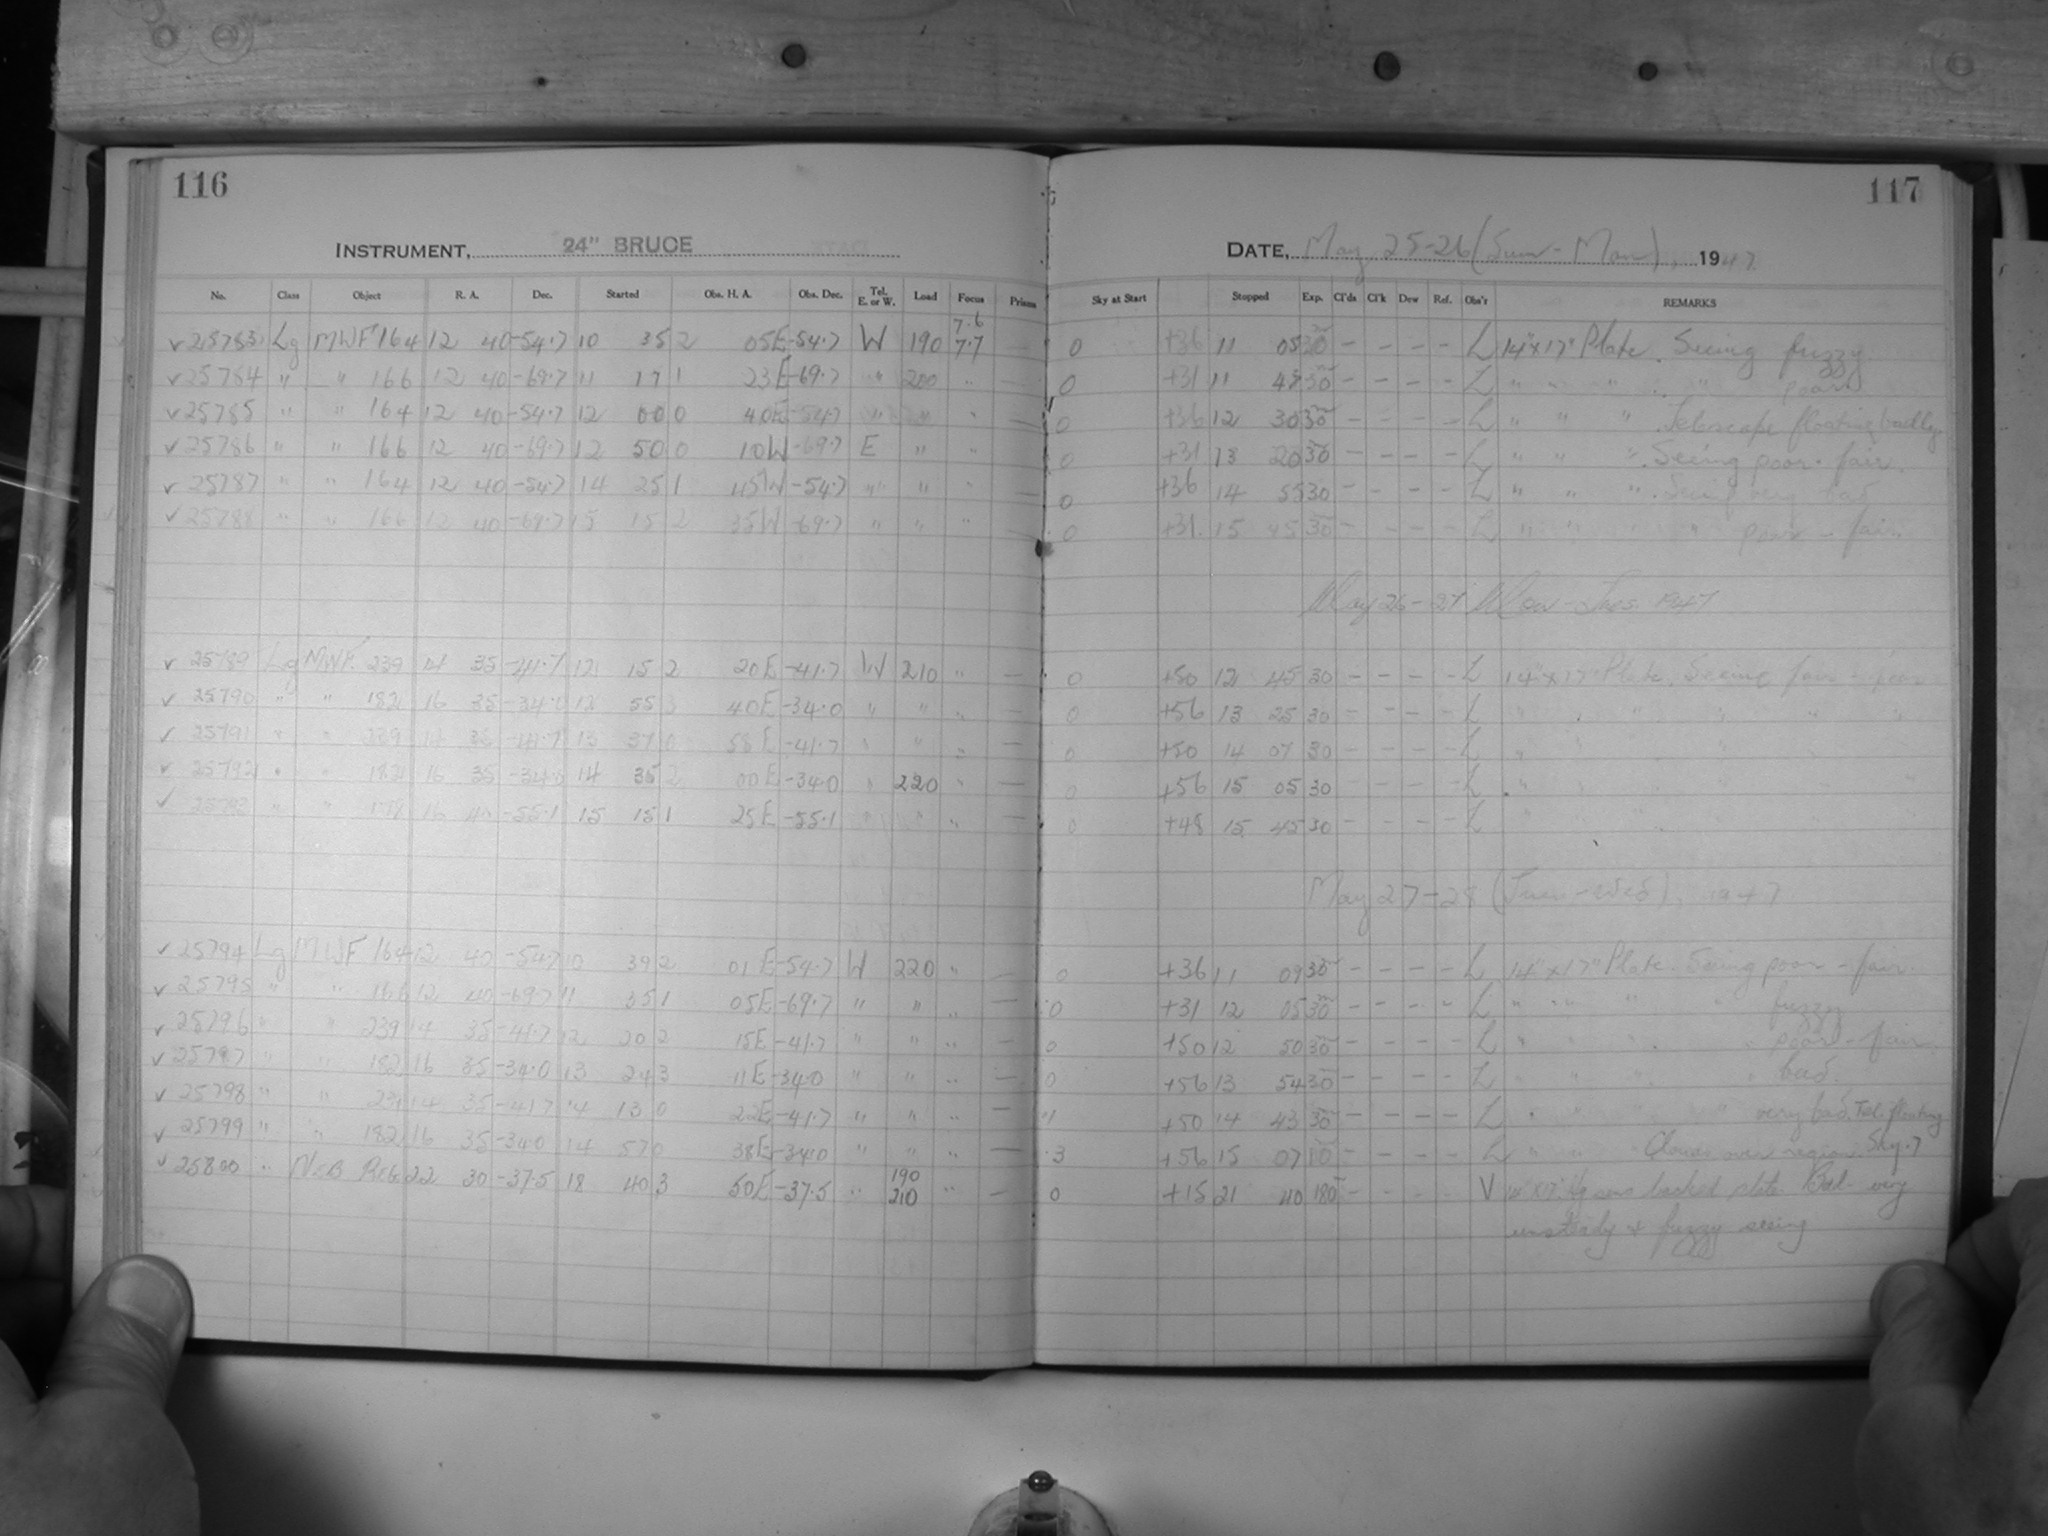 116
117
INSTRUMENT, 24" BRUCE
DATE, May 25-26 (Sun-Mon), 1947
No. Class Object R. A. Dec. Started Obs. H. A. Obs. Dec. Tel. E. or W. Load Focus Prism Sky at Start Stopped Exp. Cl'ds Cl'k Dew Ref. Obs'r REMARKS
7.6
✓ 25783 Lg MWF 164 12 40 -54.7 10 35 2 05E -54.7 W 190 7.7 — 0 +36 11 05 30 - - - - L 14"x17" Plate. Seeing fuzzy
✓ 25784 " " 166 12 40 -69.7 11 17 1 23E -69.7 " 200 " — 0 +31 11 47 30 - - - - L " " " " poor
✓ 25785 " " 164 12 40 -54.7 12 00 0 40E -54.7 " " " — 0 +36 12 30 30 - - - - L " " " Telescope floating badly
✓ 25786 " " 166 12 40 -69.7 12 50 0 10W -69.7 E " " — 0 +31 13 20 30 - - - - L " " ". Seeing poor-fair.
✓ 25787 " " 164 12 40 -54.7 14 25 1 45W -54.7 " " " — 0 +36 14 55 30 - - - - L " " ". Seeing very bad
✓ 25788 " " 166 12 40 -69.7 15 15 2 35W -69.7 " " " — 0 +31 15 45 30 - - - - L " " " " poor - fair.
May 26-27 Mon-Tues. 1947
✓ 25789 Lg MWF. 239 14 35 -41.7 12 15 2 20E -41.7 W 210 " — 0 +50 12 45 30 - - - - L 14"x17" Plate. Seeing fair - poor
✓ 25790 " " 182 16 35 -34.0 12 55 3 40E -34.0 " " " — 0 +56 13 25 30 - - - - L " " " " "
✓ 25791 " " 239 14 35 -41.7 13 37 0 58E -41.7 " " " — 0 +50 14 07 30 - - - - L " " " "
✓ 25792 " " 182 16 35 -34.0 14 35 2 00E -34.0 " 220 " — 0 +56 15 05 30 - - - - L " " " " "
✓ 25793 " " 16 40 -55.1 15 15 1 25E -55.1 " " " — 0 +48 15 45 30 - - - - L " " " " "
May 27-28 (Tues-Wed), 1947
✓ 25794 Lg MWF 164 12 40 -54.7 10 39 2 01E -54.7 W 220 " — 0 +36 11 09 30 - - - - L 14"x17" Plate. Seeing poor - fair.
✓ 25795 " " 166 12 40 -69.7 11 35 1 05E -69.7 " " " — 0 +31 12 05 30 - - - - L " " " " fuzzy
✓ 25796 " " 239 14 35 -41.7 12 20 2 15E -41.7 " " " — 0 +50 12 50 30 - - - - L " " " " poor - fair.
✓ 25797 " " 182 16 35 -34.0 13 24 3 11E -34.0 " " " — 0 +56 13 54 30 - - - - L " " " " bad.
✓ 25798 " " 239 14 35 -41.7 14 13 0 22E -41.7 " " " — +50 14 43 30 - - - - L " " " " very bad. Tel. floating
✓ 25799 " " 182 16 35 -34.0 14 57 0 38E -34.0 " " " — 3 +56 15 07 10 - - - - L " " " Clouds over region. Sky.7
✓ 25800 " 22 30 -37.5 18 40 3 50E -37.5 " 190 210 " — 0 +15 21 40 180 - - - - V 14"x17" backed plate. Bad- very
unsteady & fuzzy seeing